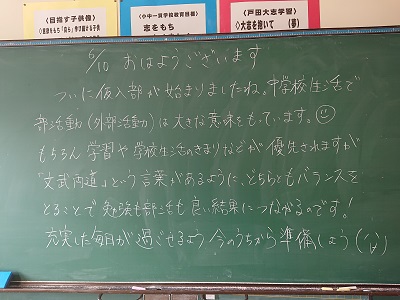 〈目指す子供像〉
〈小中一貫学校教育目標〉
志をもち
〈戸田大志学習〉
◇大志を抱いて （夢）
6/10 おはようございます
ついに仮入部が始まりましたね。中学校生活で
部活動（外部活動）は大きな意味をもっています。
もちろん 学習や学校生活のきまりなどが 優先されますが
「文武両道」という言葉があるように、どちらともバランスを
とることで 勉強も部活も 良い結果につながるのです！
充実した毎日が 過ごせるよう 今のうちから 準備しよう